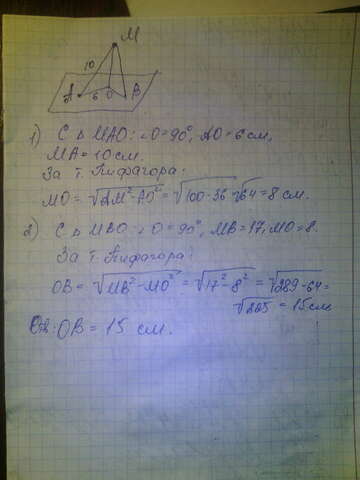 M
10
A 6 O B
1) С ∆ MAO: ∠O=90°, AO=6см,
MA=10см.
За т. Пифагора:
MO=√AM²-AO²=√100-36=√64=8 см.
2) С ∆ MBO ∠O=90°, MB=17, MO=8.
За т. Пифагора:
OB=√MB²-MO²=√17²-8²=√289-64=
√225=15см
OB=15 см.